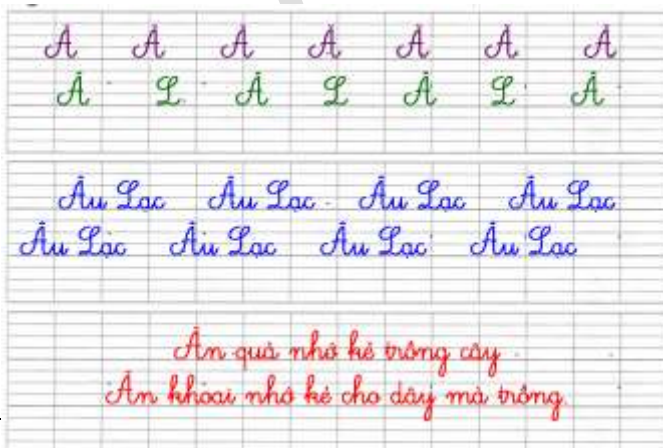 Ă Ă Ă Ă Ă Ă Ă
Â L Â L Â L Â
Âu Lạc Âu Lạc Âu Lạc Âu Lạc
Âu Lạc Âu Lạc Âu Lạc Âu Lạc
Ăn quả nhớ kẻ trồng cây
Ăn khoai nhớ kẻ cho dây mà trồng